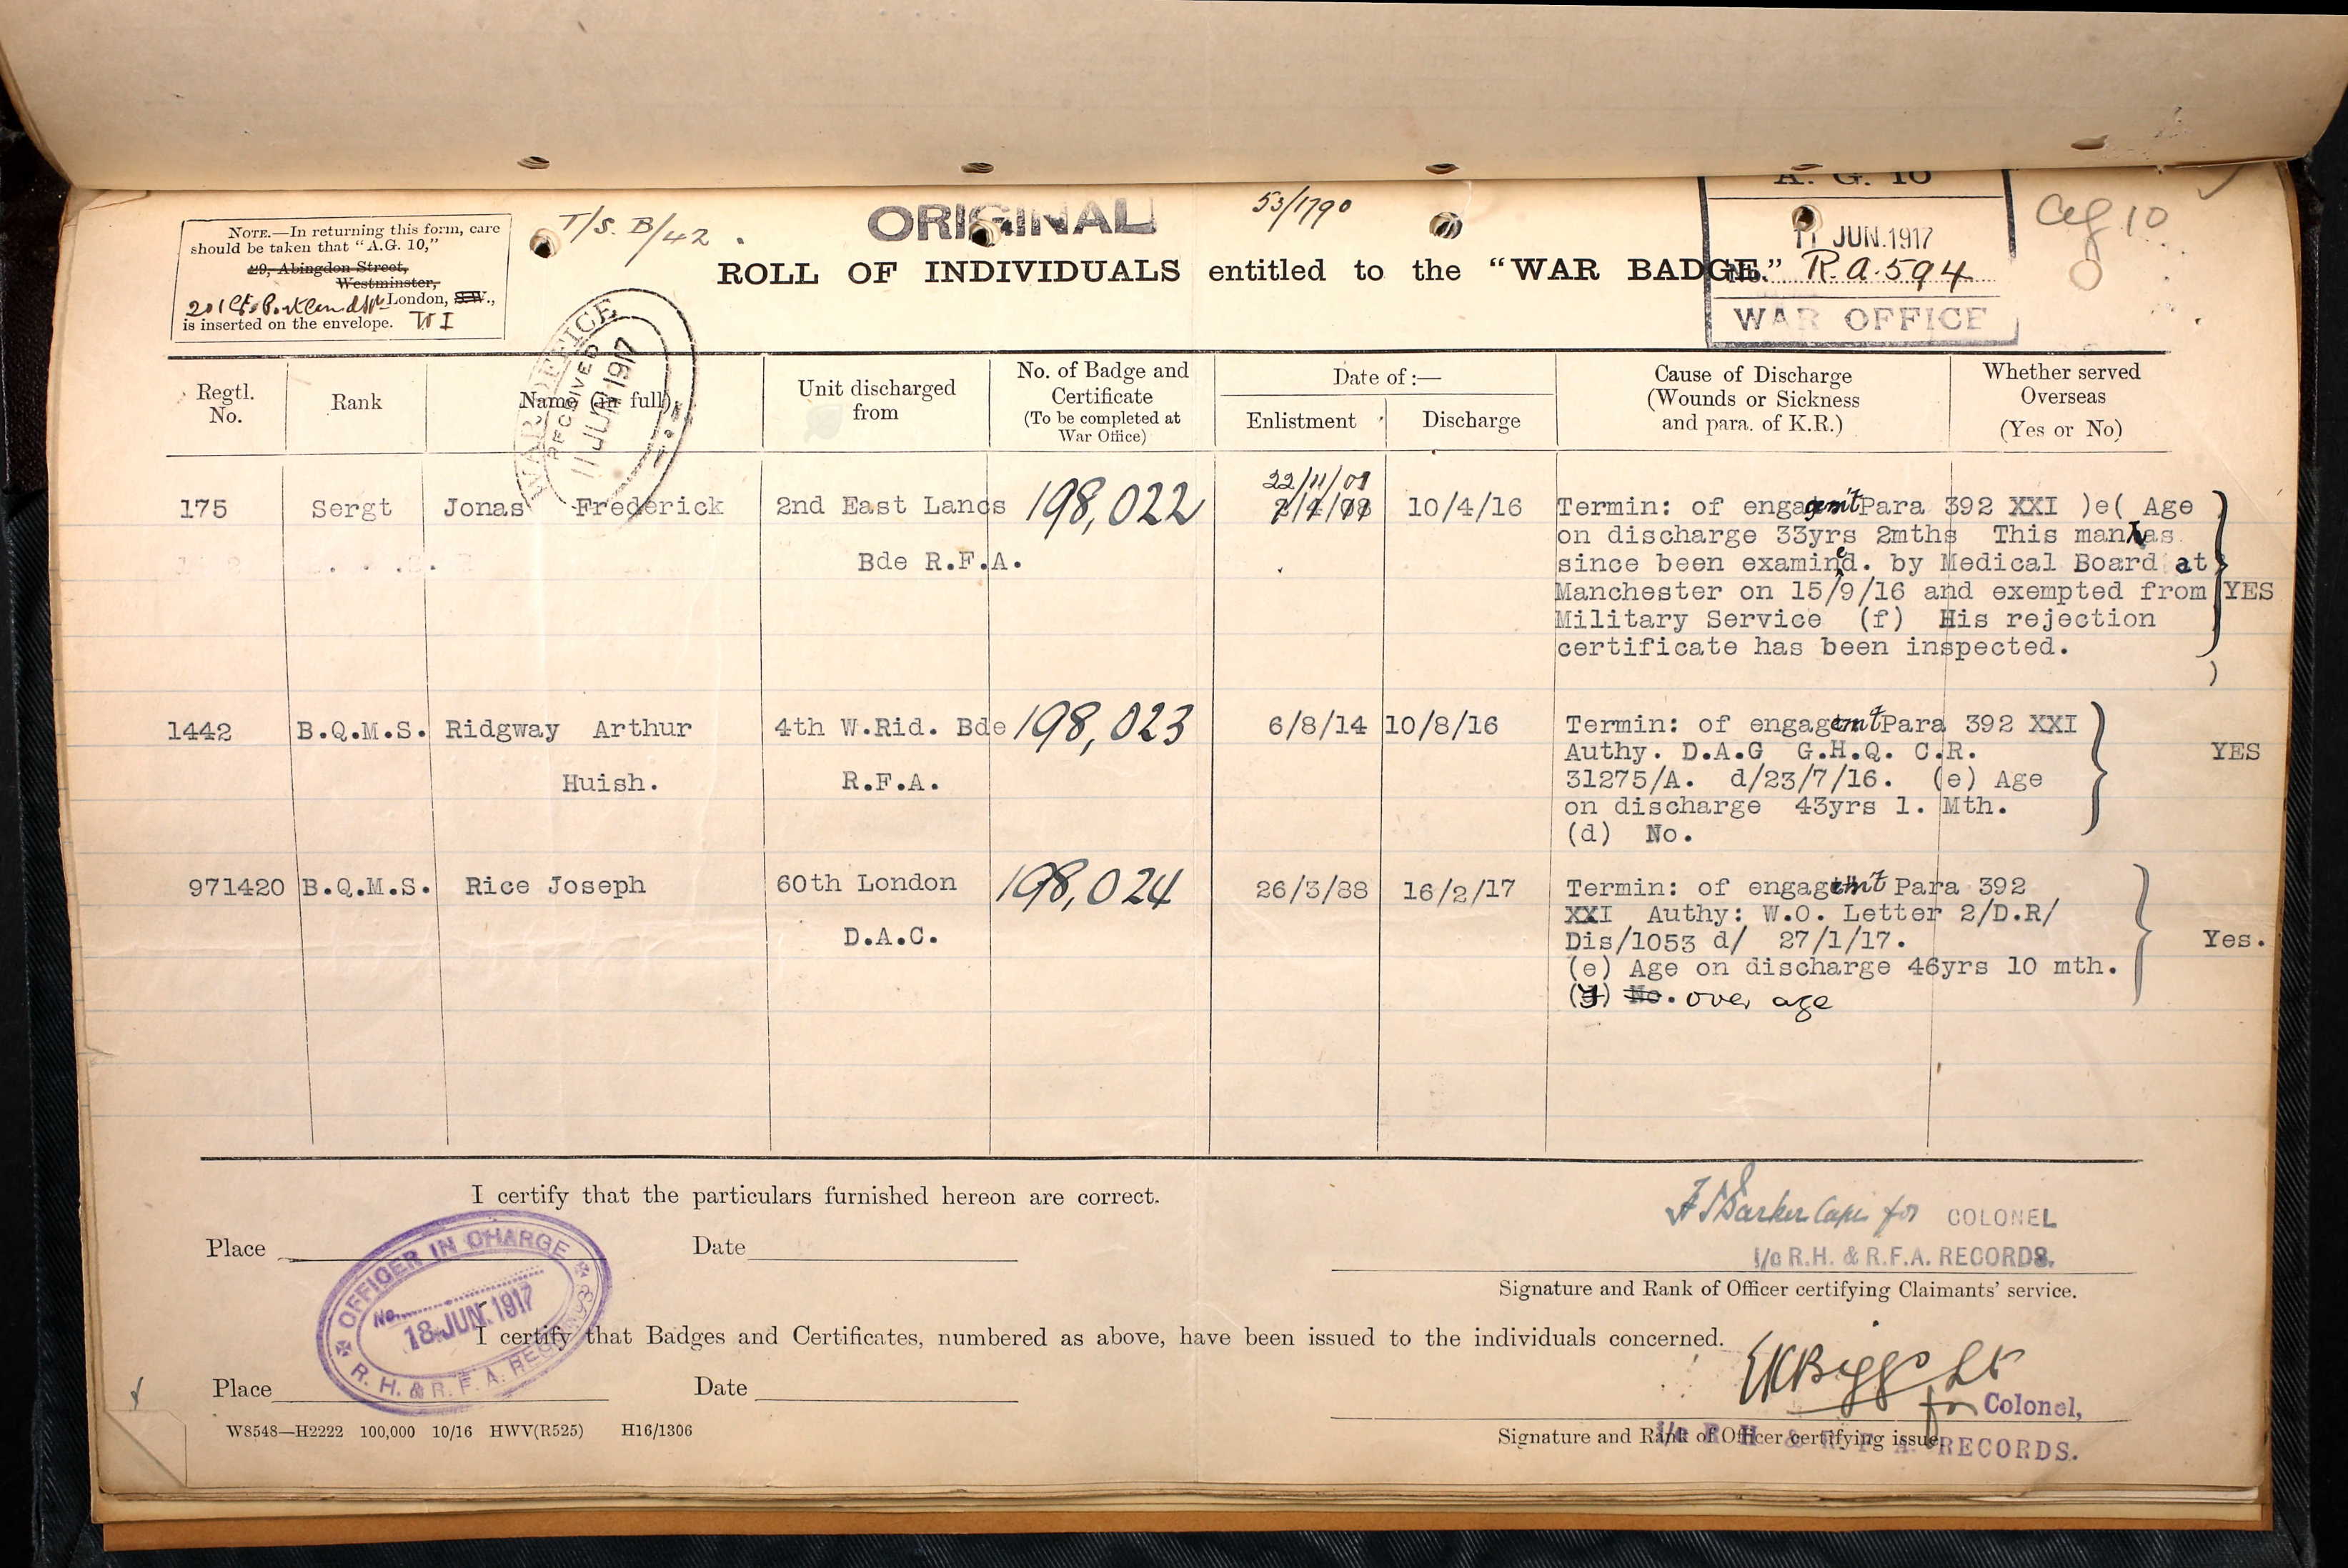 A. G. 10
NOTE.—In returning this form, care
should be taken that "A.G. 10,"
49, Abingdon Street,
Westminster,
London, S.W.,
is inserted on the envelope. W I
T/S. B/42
ORIGINAL
53/1790
11 JUN.1917
ag 10
ROLL OF INDIVIDUALS entitled to the "WAR BADGE."
No. R.a.594
WAR OFFICE
WAR OFFICE
RECEIVED
11 JUN 1917
Regtl.
No.
Rank
Name (in full)
Unit discharged
from
No. of Badge and
Certificate
(To be completed at
War Office)
Date of :—
Enlistment
Discharge
Cause of Discharge
(Wounds or Sickness
and para. of K.R.)
Whether served
Overseas
(Yes or No)
22/11/09
175 Sergt Jonas Frederick 2nd East Lancs 198,022 10/4/16 Termin: of engagemt Para 392 XXI )e( Age
on discharge 33yrs 2mths This man has
Bde R.F.A. since been examined. by Medical Board at
Manchester on 15/9/16 and exempted from YES
Military Service (f) His rejection
certificate has been inspected.
1442 B.Q.M.S. Ridgway Arthur 4th W.Rid. Bde 198,023 6/8/14 10/8/16 Termin: of engagemt Para 392 XXI
Authy. D.A.G G.H.Q. C.R. YES
Huish. R.F.A. 31275/A. d/23/7/16. (e) Age
on discharge 43yrs 1. Mth.
(d) No.
971420 B.Q.M.S. Rice Joseph 60th London 198,024 26/3/88 16/2/17 Termin: of engagemt Para 392
XXI Authy: W.O. Letter 2/D.R/
D.A.C. Dis/1053 d/ 27/1/17. Yes.
(e) Age on discharge 46yrs 10 mth.
No. over age
I certify that the particulars furnished hereon are correct.
Barker Capt for COLONEL
Place Date
i/c R.H. & R.F.A. RECORDS.
Signature and Rank of Officer certifying Claimants' service.
OFFICER IN CHARGE
No.
18 JUN. 1917
R. H. & R. F. A. RECORDS
I certify that Badges and Certificates, numbered as above, have been issued to the individuals concerned.
Biggs Lt
Place Date
for Colonel,
W8548—H2222 100,000 10/16 HWV(R525) H16/1306
Signature and Rank of Officer certifying issue.
i/c R H & R. F A. RECORDS.